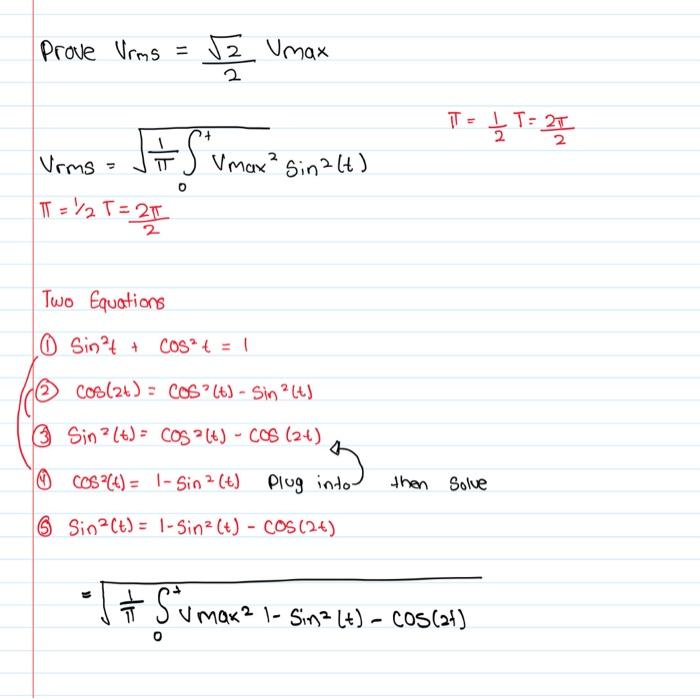 Prove Vrms = √2/2 Vmax
π = 1/2 T = 2π/2
Vrms = √(1/π ∫₀ᵗ Vmax² Sin²(t))
π = 1/2 T = 2π/2
Two Equations
① Sin²t + Cos²t = 1
② Cos(2t) = Cos²(t) - Sin²(t)
③ Sin²(t) = Cos²(t) - Cos(2t)
④ Cos²(t) = 1 - Sin²(t) Plug into then Solve
⑤ Sin²(t) = 1 - Sin²(t) - Cos(2t)
= √(1/π ∫₀ᵗ Vmax² 1 - Sin²(t) - Cos(2t))